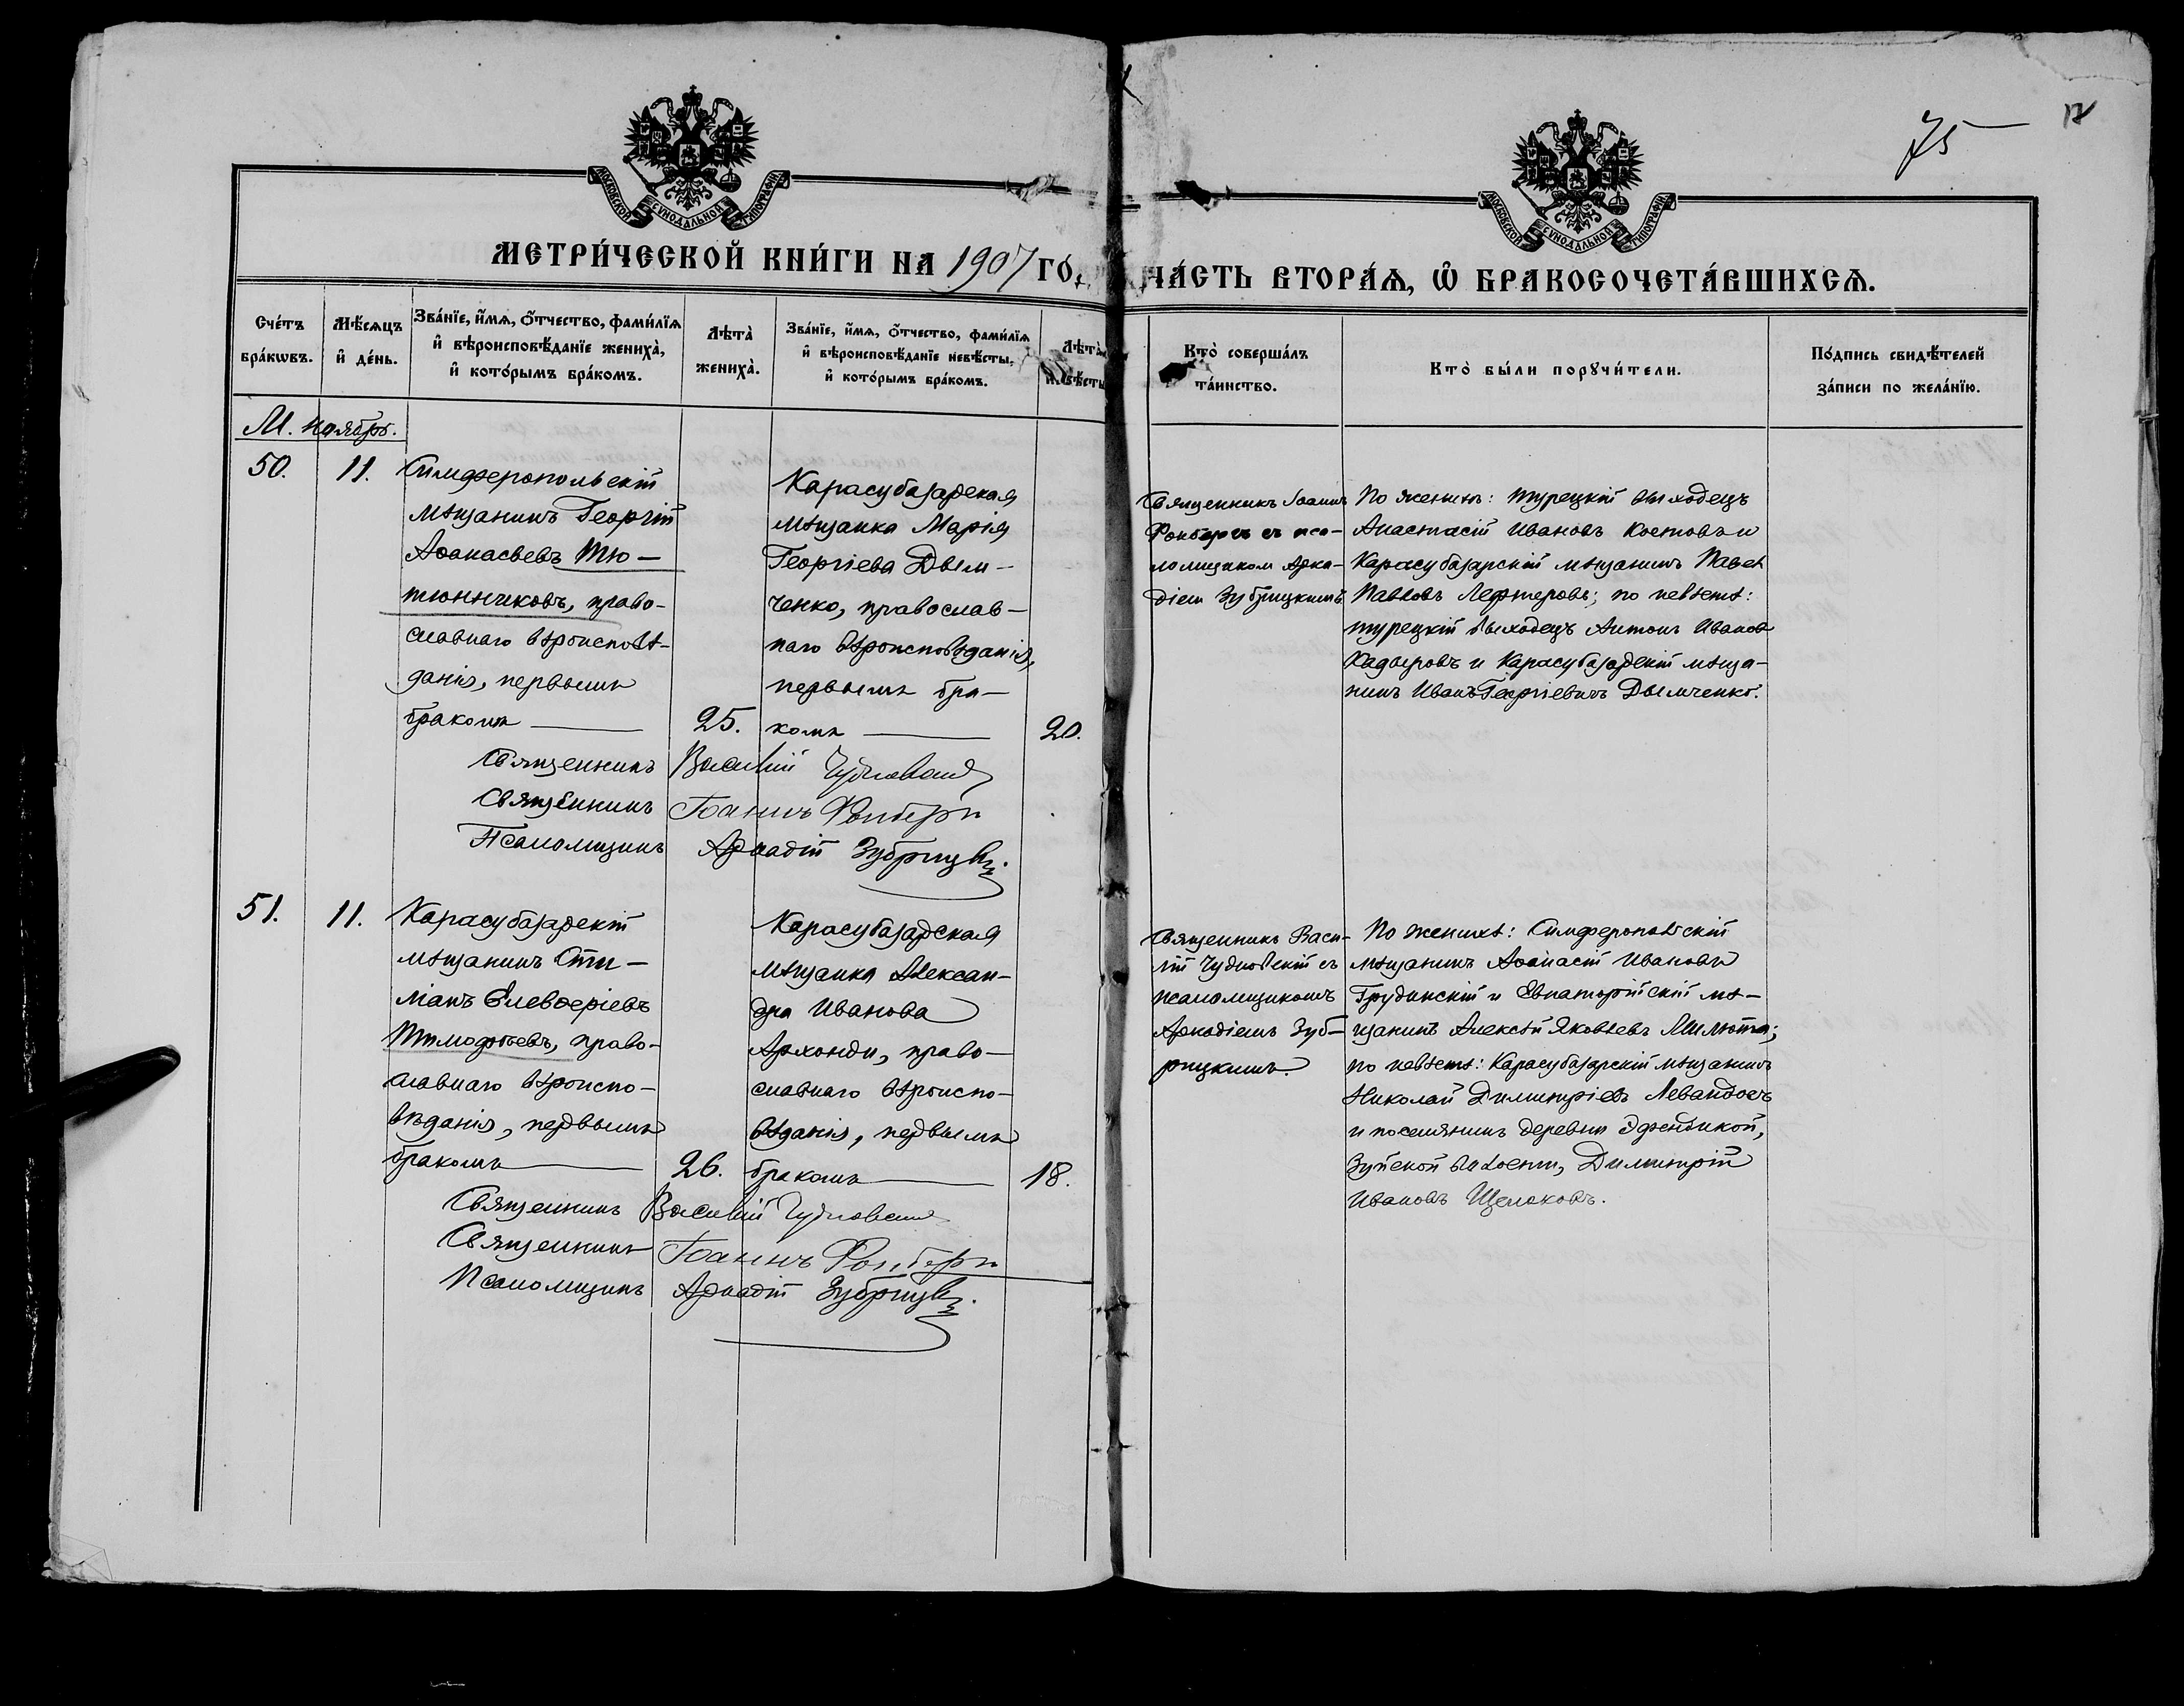 75
МОСКОВСКОЙ СУНОДАЛЬНОЙ ТИПОГРАФІИ
МОСКОВСКОЙ СУНОДАЛЬНОЙ ТИПОГРАФІИ
МЕТРИ́ЧЕСКОЙ КНИ́ГИ НА 1907 ГО́
ЧА́СТЬ ВТОРА́Ѧ, Ѽ БРАКОСОЧЕТА́ВШИХСѦ.
Сче́тъ бра́кωвъ.
Мѣ́сѧцъ и҆ де́нь.
Зва́нїе, и҆́мѧ, о҆́тчество, фами́лїѧ
и҆ вѣроисповѣ́данїе жениха̀,
и҆ кото́рымъ бра́комъ.
Лѣта̀ жениха̀.
Зва́нїе, и҆́мѧ, о҆́тчество, фами́лїѧ
и҆ вѣроисповѣ́данїе невѣ́сты,
и҆ кото́рымъ бра́комъ.
Лѣта̀ невѣ́сты
Кто̀ соверша́лъ
та́инство.
Кто̀ бы́ли порꙋчи́тели.
По́дпись свидѣ́телей
за́писи по жела́нїю.
М. Ноябрь.
50.
11.
Симферопольскій
мѣщанинъ Георгій
Аѳанасьевъ Тю-
тюнниковъ, право-
славнаго вѣроисповѣ-
данія, первымъ
бракомъ
25.
Карасубазарская
мѣщанка Марія
Георгіева Дым-
ченко, православ-
наго вѣроисповѣданія,
первымъ бра-
комъ
20.
Священникъ Іоаннъ
Фонберъ съ пса-
ломщикомъ Арка-
діем Зубрицкимъ
По женихѣ: турецкій выходецъ
Анастасій Ивановъ Костовъ и
Карасубазарскій мѣщанинъ Павел
Павловъ Лефтеровъ; по невѣстѣ:
турецкій выходецъ Антонъ Иванов
Кадыровъ и Карасубазарскій мѣща-
нинъ Иванъ Георгіевичъ Дымченко.
Священникъ Василій Чудновскій
Священникъ Іоаннъ Фонберъ
Псаломщикъ Аркадій Зубрицкій.
51.
11.
Карасубазарскій
мѣщанинъ Сти-
ліанъ Елевѳеріевъ
Тимофеевъ, право-
славнаго вѣроиспо-
вѣданія, первымъ
бракомъ
26.
Карасубазарская
мѣщанка Алексан-
дра Иванова
Архонди, право-
славнаго вѣроиспо-
вѣданія, первымъ
бракомъ
18.
Священникъ Васи-
лій Чудновскій съ
псаломщикомъ
Аркадіемъ Зуб-
рицкимъ.
По женихѣ: Симферопольскій
мѣщанинъ Аѳанасій Ивановъ
Грудинскій и Евпаторійскій мѣ-
щанинъ Алексѣй Яковлевъ Милюта;
по невѣстѣ: Карасубазарскій мѣщанинъ
Николай Димитріевъ
и поселянинъ деревни
Зуйской волости, Димитрій
Ивановъ Щелоковъ.
Священникъ Василій Чудновскій
Священникъ Іоаннъ Фонберъ
Псаломщикъ Аркадій Зубрицкій.